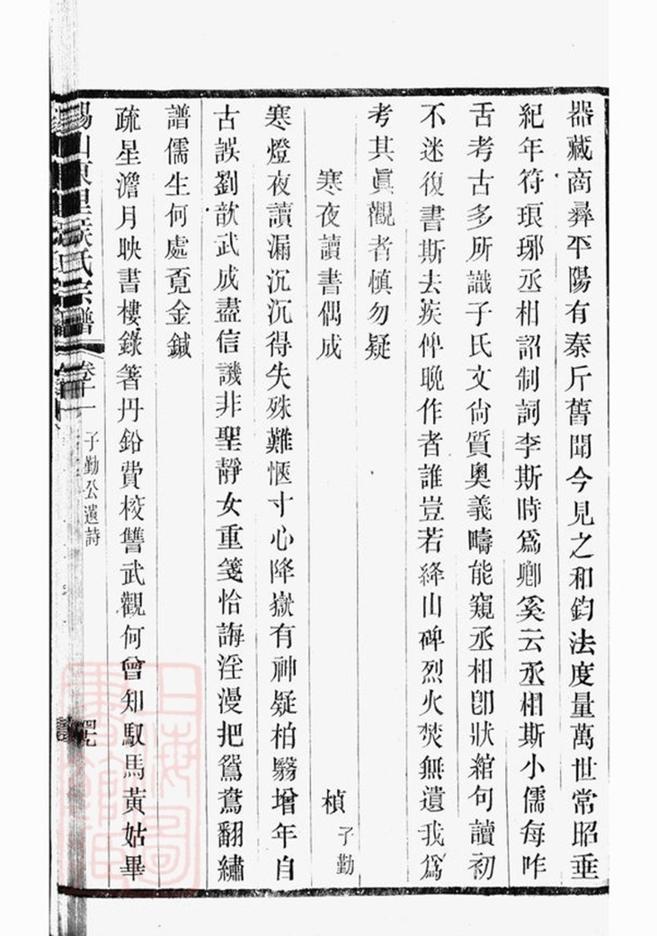 器藏商彝平陽有秦斤舊聞今見之和鈞法度量萬世常昭垂
紀年符琅琊丞相詔制詞李斯時爲卿奚云丞相斯小儒每咋
舌考古多所識子氏文尙質奧義疇能窺丞相卽狀綰句讀初
不迷復書斯去疾俾晚作者誰豈若絳山碑烈火焚無遺我爲
考其眞觀者慎勿疑
寒夜讀書偶成 楨子勤
寒燈夜讀漏沉沉得失殊難愜寸心降嶽有神疑柏翳增年自
古誤劉歆武成盡信譏非聖靜女重箋恰誨淫漫把鴛鴦翻繡
譜儒生何處覓金鍼
疏星澹月映書樓錄箸丹鉛費校讐武觀何曾知馭馬黃姑畢
錫山東里侯氏宗譜 卷十一 子勤公遺詩
上海圖書館藏